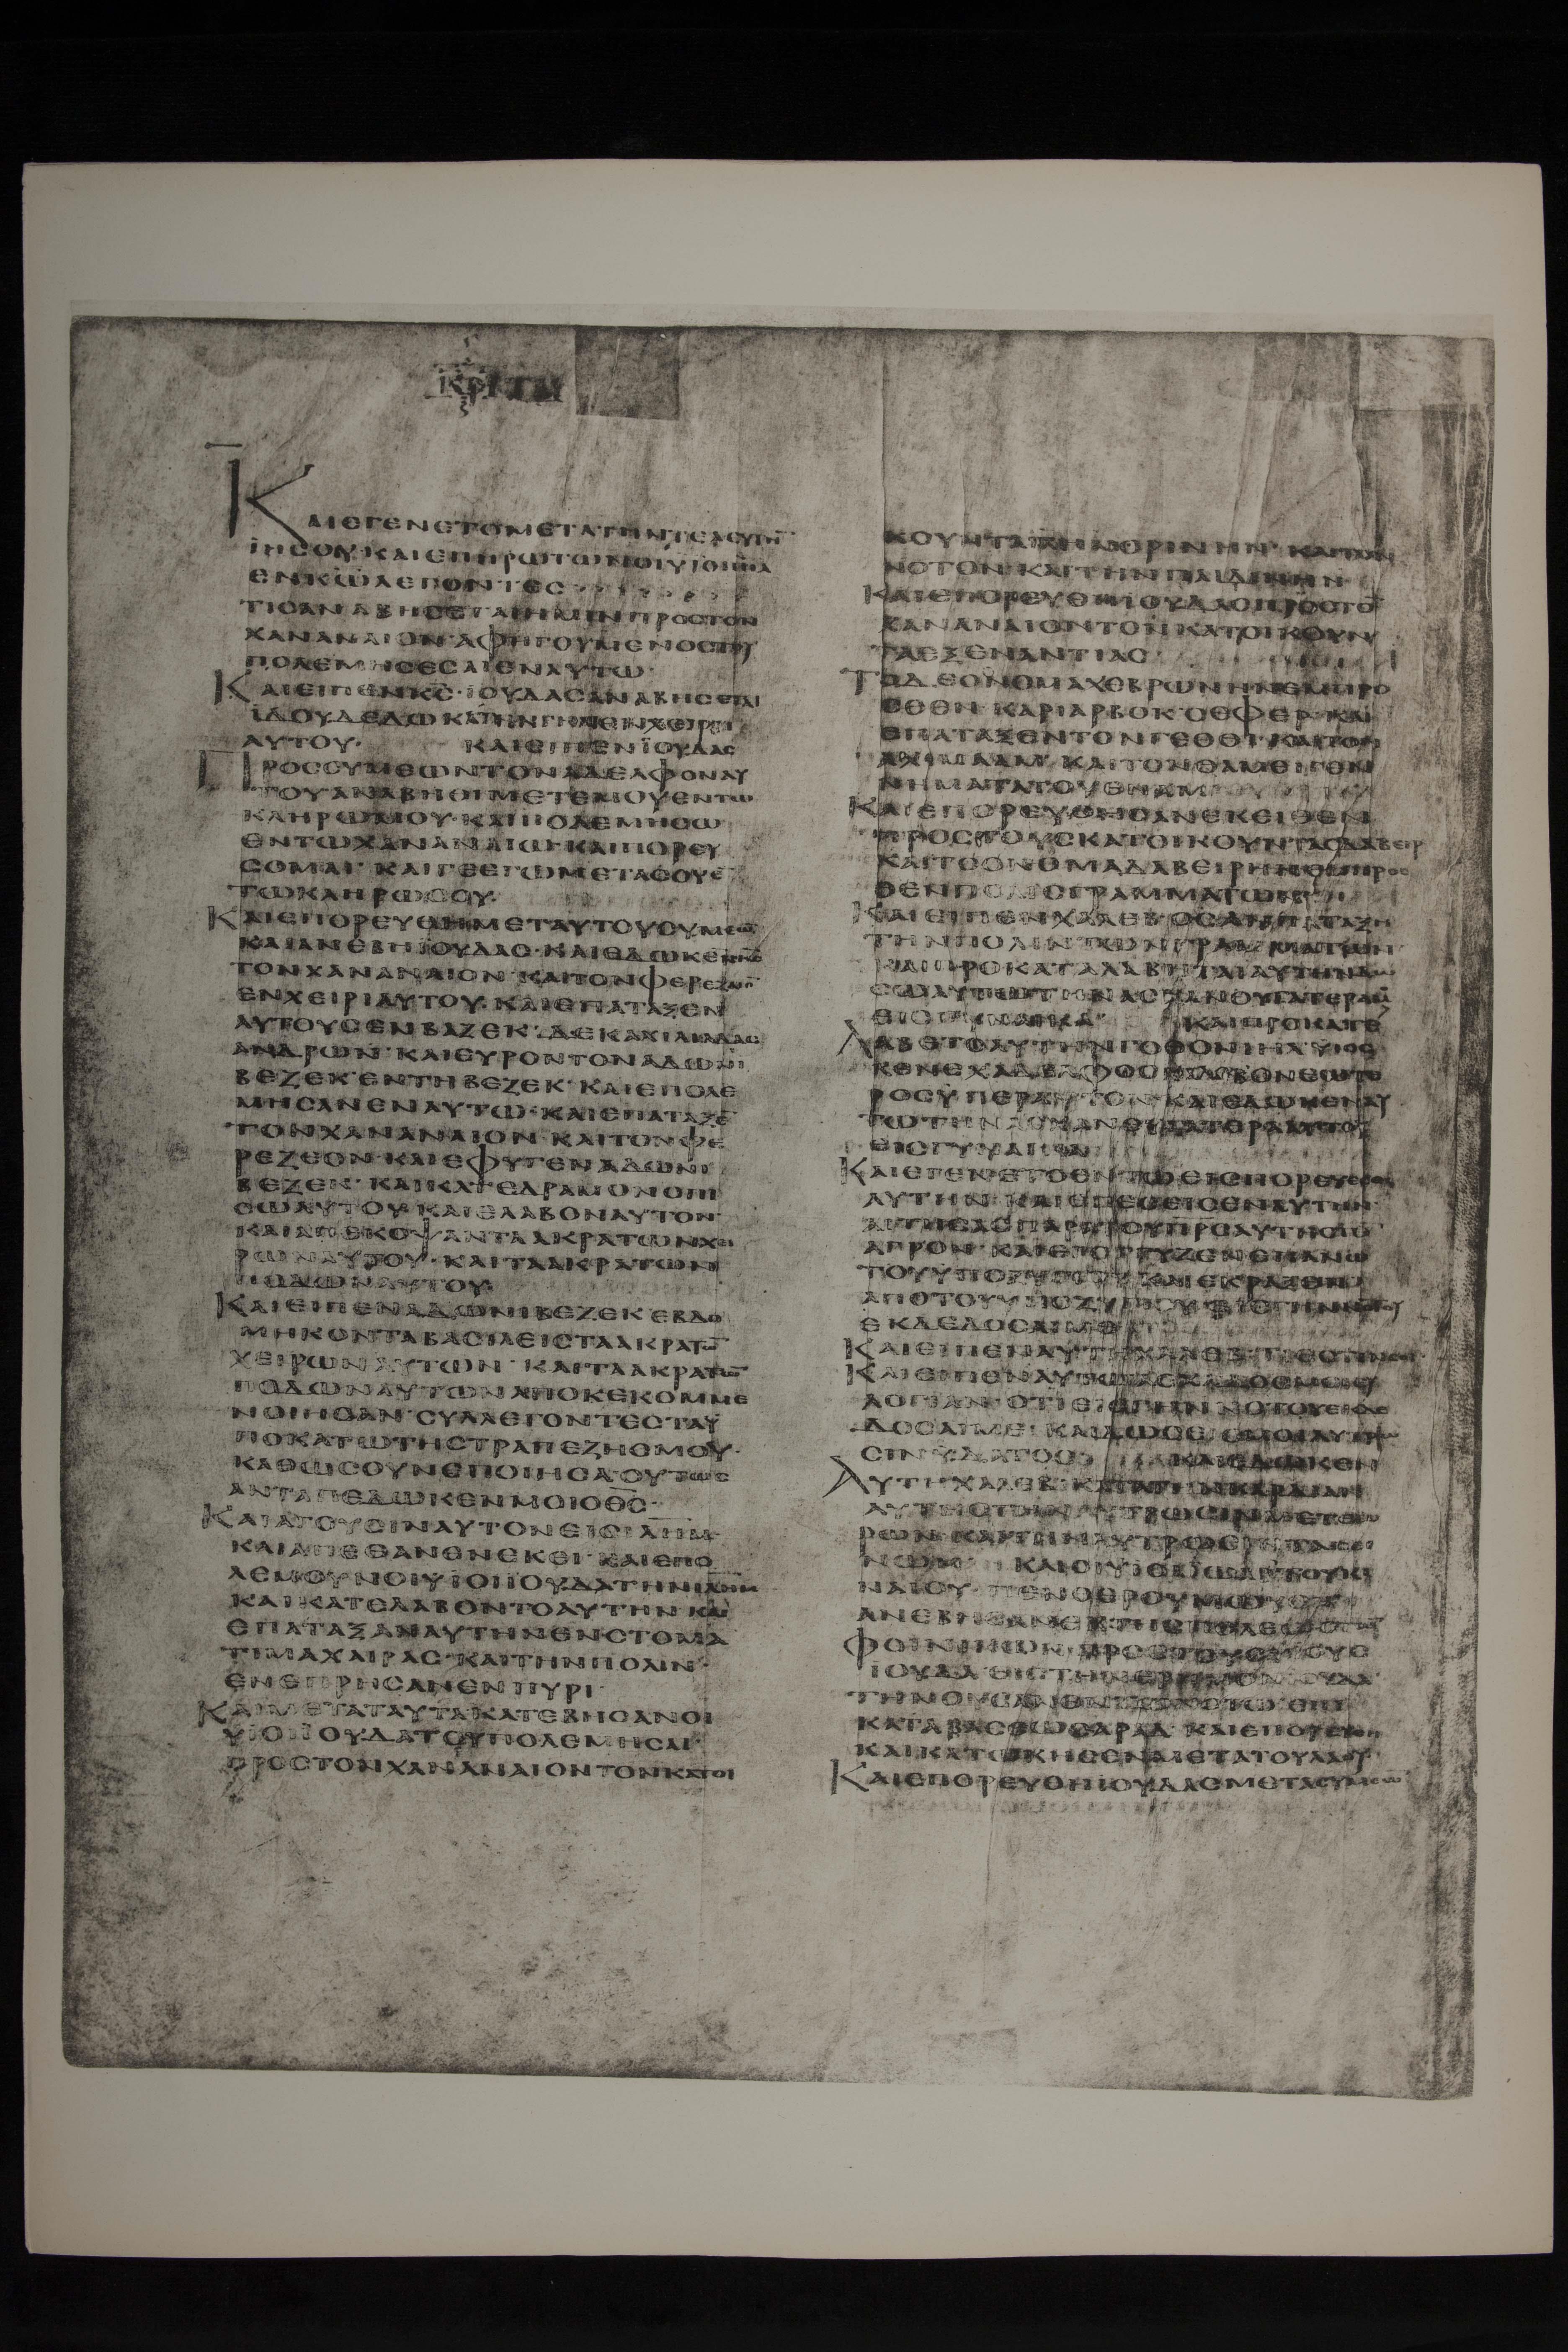 ΚΡΙΤΑΙ
ΚΑΙΕΓΕΝΕΤΟΜΕΤΑΤΗΝΤΕΛΕΥΤΗ̅
ΙΗΣΟΥ·ΚΑΙΕΠΗΡΩΤΩΝΟΙΥΙΟΙΙΗ̅Λ
ΕΝΚΩ̅ΛΕΓΟΝΤΕΣ
ΤΙΣΑΝΑΒΗΣΕΤΑΙΗΜΙΝΠΡΟΣΤΟΝ
ΧΑΝΑΝΑΙΟΝ·ΑΦΗΓΟΥΜΕΝΟΣΤΟΥ
ΠΟΛΕΜΗΣΕΣΑΙΕΝΑΥΤΩ·
ΚΑΙΕΙΠΕΝΚ̅Σ̅·ΙΟΥΔΑΣΑΝΑΒΗΣΕΤΑΙ
ΙΔΟΥΔΕΔΩΚΑΤΗΝΓΗΝΕΝΧΕΙΡΙ
ΑΥΤΟΥ· ΚΑΙΕΙΠΕΝΙΟΥΔΑΣ
ΠΡΟΣΣΥΜΕΩΝΤΟΝΑΔΕΛΦΟΝΑΥ
ΤΟΥΑΝΑΒΗΘΙΜΕΤΕΜΟΥΕΝΤΩ
ΚΛΗΡΩΜΟΥ·ΚΑΙΠΟΛΕΜΗΣΩ
ΕΝΤΩΧΑΝΑΝΑΙΩ·ΚΑΙΠΟΡΕΥ
ΣΟΜΑΙ·ΚΑΙΓΕΕΓΩΜΕΤΑΣΟΥΕ̅
ΤΩΚΛΗΡΩΣΟΥ·
ΚΑΙΕΠΟΡΕΥΘΗΜΕΤΑΥΤΟΥΣΥΜΕΩ̅
ΚΑΙΑΝΕΒΗΙΟΥΔΑΣ·ΚΑΙΕΔΩΚΕΝΚ̅Σ̅
ΤΟΝΧΑΝΑΝΑΙΟΝ·ΚΑΙΤΟΝΦΕΡΕΖΑΙΟ̅
ΕΝΧΕΙΡΙΑΥΤΟΥ·ΚΑΙΕΠΑΤΑΞΕΝ
ΑΥΤΟΥΣΕΝΒΑΖΕΚ·ΔΕΚΑΧΙΛΙΑΔΑΣ
ΑΝΔΡΩΝ·ΚΑΙΕΥΡΟΝΤΟΝΑΔΩΝΙ
ΒΕΖΕΚΕΝΤΗΒΕΖΕΚ·ΚΑΙΕΠΟΛΕ
ΜΗΣΑΝΕΝΑΥΤΩ·ΚΑΙΕΠΑΤΑΞΕ̅
ΤΟΝΧΑΝΑΝΑΙΟΝ·ΚΑΙΤΟΝΦΕ
ΡΕΖΕΟΝ·ΚΑΙΕΦΥΓΕΝΑΔΩΝΙ
ΒΕΖΕΚ·ΚΑΙΚΑΤΕΔΡΑΜΟΝΟΠΙ
ΣΩΑΥΤΟΥ·ΚΑΙΕΛΑΒΟΝΑΥΤΟΝ·
ΚΑΙΑΠΕΚΟΨΑΝΤΑΑΚΡΑΤΩΝΧΕΙ
ΡΩΝΑΥΤΟΥ·ΚΑΙΤΑΑΚΡΑΤΩΝ
ΠΟΔΩΝΑΥΤΟΥ·
ΚΑΙΕΙΠΕΝΑΔΩΝΙΒΕΖΕΚΕΒΔΟ
ΜΗΚΟΝΤΑΒΑΣΙΛΕΙΣΤΑΑΚΡΑΤΩ̅
ΧΕΙΡΩΝΑΥΤΩΝ·ΚΑΙΤΑΑΚΡΑΤΩ̅
ΠΟΔΩΝΑΥΤΩΝΑΠΟΚΕΚΟΜΜΕ
ΝΟΙΗΣΑΝ·ΣΥΛΛΕΓΟΝΤΕΣΤΑΥ
ΠΟΚΑΤΩΤΗΣΤΡΑΠΕΖΗΣΜΟΥ·
ΚΑΘΩΣΟΥΝΕΠΟΙΗΣΑΟΥΤΩΣ
ΑΝΤΑΠΕΔΩΚΕΝΜΟΙΟΘ̅Σ̅·
ΚΑΙΑΓΟΥΣΙΝΑΥΤΟΝΕΙΣΙΛΗΜ̅·
ΚΑΙΑΠΕΘΑΝΕΝΕΚΕΙ·ΚΑΙΕΠΟ
ΛΕΜΟΥΝΟΙΥΙΟΙΙΟΥΔΑΤΗΝΙΛΗΜ̅
ΚΑΙΚΑΤΕΛΑΒΟΝΤΟΑΥΤΗΝΚΑΙ
ΕΠΑΤΑΞΑΝΑΥΤΗΝΕΝΣΤΟΜΑ
ΤΙΜΑΧΑΙΡΑΣ·ΚΑΙΤΗΝΠΟΛΙΝ·
ΕΝΕΠΡΗΣΑΝΕΝΠΥΡΙ·
ΚΑΙΜΕΤΑΤΑΥΤΑΚΑΤΕΒΗΣΑΝΟΙ
ΥΙΟΙΙΟΥΔΑΤΟΥΠΟΛΕΜΗΣΑΙ·
ΠΡΟΣΤΟΝΧΑΝΑΝΑΙΟΝΤΟΝΚΑΤΟΙ
ΚΟΥΝΤΑΤΗΝΟΡΙΝΗΝ·ΚΑΙΤΟΝ
ΝΟΤΟΝ·ΚΑΙΤΗΝΠΑΙΔΙΝΗΝ
ΚΑΙΕΠΟΡΕΥΘΗΙΟΥΔΑΣΠΡΟΣΤΟ̅
ΧΑΝΑΝΑΙΟΝΤΟΝΚΑΤΟΙΚΟΥΝ
ΤΑΕΞΕΝΑΝΤΙΑΣ·
ΤΟΔΕΟΝΟΜΑΧΕΒΡΩΝΗΝΕΜΠΡΟ
ΣΘΕΝ·ΚΑΡΙΑΡΒΟΚΣΕΦΕΡ·ΚΑΙ
ΕΠΑΤΑΞΕΝΤΟΝΓΕΘΘΙ·ΚΑΙΤΟΝ
ΚΑΙΤΟΝΘΑΜΕΙΓΕΝ
ΝΗΜΑΤΑΤΟΥΕΝΑΚ
ΚΑΙΕΠΟΡΕΥΘΗΣΑΝΕΚΕΙΘΕΝ
ΠΡΟΣΤΟΥΣΚΑΤΟΙΚΟΥΝΤΑΣΔΑΒΕΙΡ
ΚΑΙΤΟΟΝΟΜΑΔΑΒΕΙΡΗΝΕΜΠΡΟΣ
ΘΕΝΠΟΛΙΣΓΡΑΜΜΑΤΩΝ
ΚΑΙΕΙΠΕΝΧΑΛΕΒΟΣΑΝΠΑΤΑΞΗ
ΤΗΝΠΟΛΙΝΤΩΝΓΡΑΜΜΑΤΩΝ
ΚΑΙΠΡΟΚΑΤΑΛΑΒΗΤΑΙΑΥΤΗΝΔΩ
ΣΩΑΥΤΩΤΗΝΑΣΧΑΝΘΥΓΑΤΕΡΑΜΟΥ
ΕΙΣΓΥΝΑΙΚΑ· ΚΑΙΠΡΟΚΑΤΕ
ΛΑΒΕΤΟΑΥΤΗΝΓΟΘΟΝΙΗΛΥΙΟΣ
ΚΕΝΕΖΑΔΕΛΦΟΣΧΑΛΕΒΟΝΕΩΤΕ
ΡΟΣΥΠΕΡΑΥΤΟΝ·ΚΑΙΕΔΩΚΕΝΑΥ
ΤΩΤΗΝΑΣΧΑΝΘΥΓΑΤΕΡΑΑΥΤΟΥ
ΕΙΣΓΥΝΑΙΚΑ
ΚΑΙΕΓΕΝΕΤΟΕΝΤΩΕΙΣΠΟΡΕΥΕΣΘΑΙ
ΑΥΤΗΝ·ΚΑΙΕΠΕΣΕΙΣΕΝΑΥΤΗΝ
ΑΙΤΗΣΑΙΠΑΡΑΤΟΥΠΡΣΑΥΤΗΣΤΟ
ΑΓΡΟΝ·ΚΑΙΕΓΟΓΓΥΖΕΝΕΠΑΝΩ
ΤΟΥΥΠΟΖΥΓΙΟΥ·ΚΑΙΕΚΡΑΞΕΝ
ΑΠΟΤΟΥΥΠΟΖΥΓΙΟΥ·ΕΙΣΓΗΝΝΟΤΟΥ
ΕΚΔΕΔΟΣΑΙΜΕ
ΚΑΙΕΙΠΕΝΑΥΤΗΧΑΛΕΒ·ΤΙΕΣΤΙΝΣΟΙ
ΚΑΙΕΙΠΕΝΑΥΤΩΑΣΧΑΔΟΣΜΟΙΕΥ
ΛΟΓΙΑΝ·ΟΤΙΕΙΣΓΗΝΝΟΤΟΥΕΚΔΕ
ΔΟΣΑΙΜΕ·ΚΑΙΔΩΣΕΙΣΕΜΟΙΛΥΤΡΩ
ΣΙΝΥΔΑΤΟΣ· ΚΑΙΕΔΩΚΕΝ
ΑΥΤΗΧΑΛΕΒ·ΚΑΤΑΤΗΝΚΑΡΔΙΑΝ
ΑΥΤΗΣΤΗΝΛΥΤΡΩΣΙΝΜΕΤΕΩ
ΡΩΝ·ΚΑΙΤΗΝΛΥΤΡΩΣΙΝΤΑΠΕΙ
ΝΩΝ· ΚΑΙΟΙΥΙΟΙΙΩΒΑΒΤΟΥΚΕΙ
ΝΑΙΟΥ·ΠΕΝΘΕΡΟΥΜΩΥΣΗ
ΑΝΕΒΗΣΑΝΕΚΤΗΣΠΟΛΕΩΣΤΩ̅
ΦΟΙΝΙΚΩΝ·ΠΡΟΣΤΟΥΣΥΙΟΥΣ
ΙΟΥΔΑ·ΕΙΣΤΗΝΕΡΗΜΟΝΙΟΥΔΑ
ΤΗΝΟΥΣΑΝΕΝΤΩΝΟΤΩΕΠΙ
ΚΑΤΑΒΑΣΕΩΣΑΡΑΔ·ΚΑΙΕΠΟΡΕΥΘΗ
ΚΑΙΚΑΤΩΚΗΣΕΝΜΕΤΑΤΟΥΛΑΟΥ·
ΚΑΙΕΠΟΡΕΥΘΗΙΟΥΔΑΣΜΕΤΑΣΥΜΕΩ̅